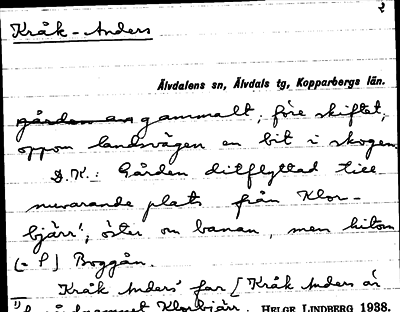 2
Kråk-Anders
Älvdalens sn, Älvdals tg, Kopparbergs län.
gården av gammalt, före skiftet,
oppom landsvägen en bit i skogen.
D.K.: Gården ditflyttad till
nuvarande plats från Klor-
bjärr¹, öster om banan, men hitom
(- P] Boggån.
Kråk Anders' far [Kråk Anders är
Klorbjärr. HELGE LINDBERG 1938.